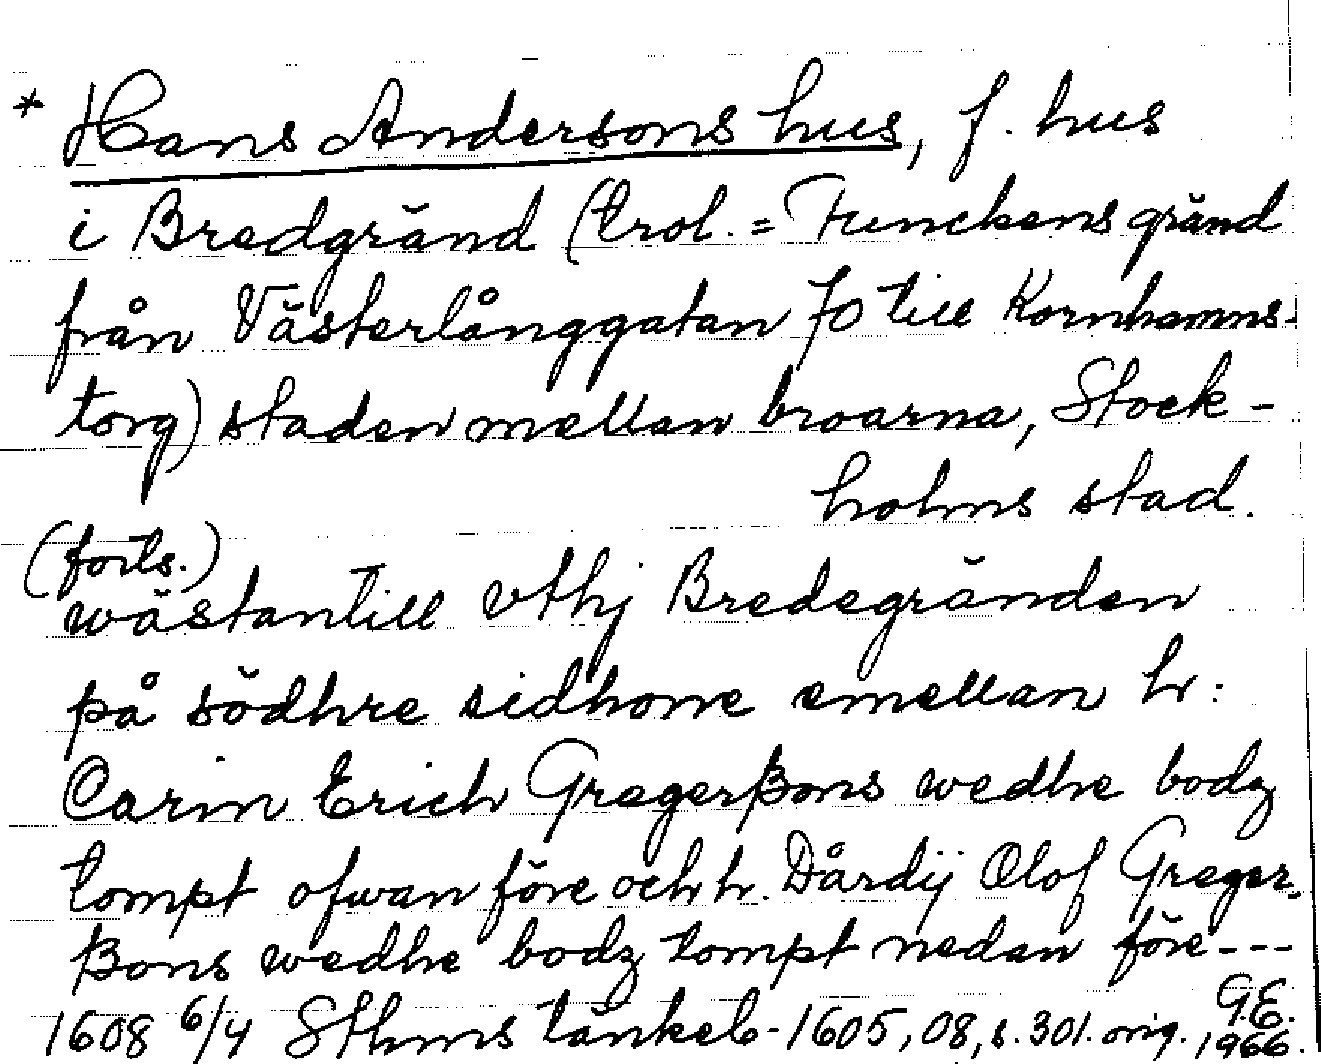 * Hans Andersons hus, f. hus
i Bredgränd (trol. = Funckens gränd
från Västerlånggatan 70 till Kornhamns-
torg) staden mellan broarna, Stock-
holms stad.
(forts.)
wästantill vthj Bredegränden
på södhre sidhonne emellan hr:
Carin Erich Gregerßons wedhe bodz
tompt ofwan före och hr. Dårdij Olof Greger-
ßons wedhe bodz tompt nedan före---
1608 6/4 Sthms tänkeb. 1605,08, s. 301. orig. G.E. 1966.